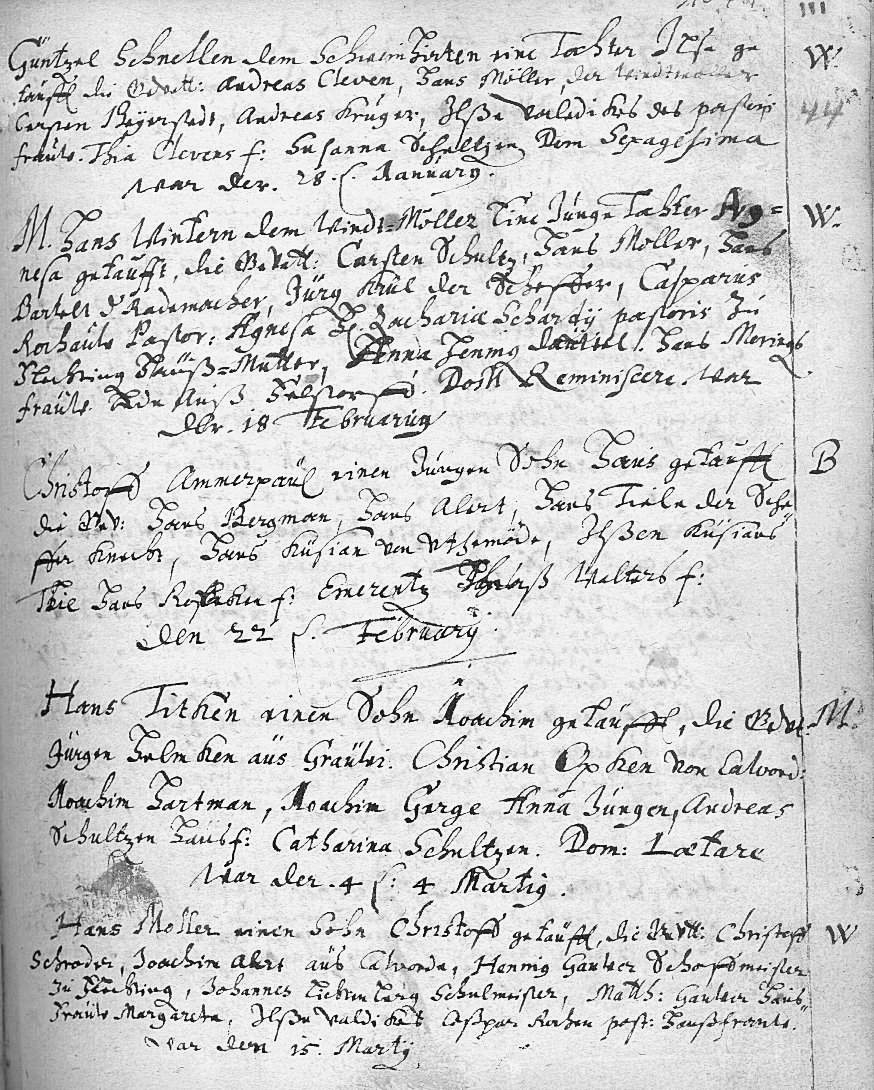 111
Güntzel Schnellen dem Schweinhirten eine Tochter Ilse ge W.
taufft die Gevatt: Andreas Cleven, Hans Möller, der Windtmöller 44
Carsten Beyerstedt, Andreas Krüger, Ilße Valedikes des pastoris
frauw. Thia Clevens f: Susanna Schultzen Dom Sexagesima
war der. 28. Januarÿ.
M. Hans Winkern dem Windt-Möller Eine Junge Tochter Ag= W.
nesa getaufft, die Gevatt: Carsten Schultz, Hans Moller, Hans
Bartelt Rademacher, Jürg Krül der Scheffer, Casparus
Rorhauts Pastor: Agnesa H. Zachariæ Schardÿ pastoris zu
Flechting Hauß=Mutter, Anna Hans Merings
frauw. auß Helstorff. Dom Reminiscere. war
der. 18 Februariÿ
Christoff Ammerpaul einen Jungen Sohn Hans getaufft B
die Gev: Hans Bergman, Hans Alert, Hans Tieln der Sche
ffer Knecht, Hans Küsian von Uthmöde, Ilßen Küsians
Thie Hans f: Emerentz Walters f:
den 22 Februarÿ.
Hans Titken einen Sohn Joachim getaufft, die Gevt: M.
Jürgen Helmken aus Grauwi. Christian Opken von Calvord:
Joachim Hartman, Joachim Gerge Anna Jungen, Andreas
Schultzen Hausf: Catharina Schultzen. Dom: Lætare
war der. 4 4 Martiÿ.
Hans Moller einen Sohn Christoff getaufft, die Gevtt: Christoff W
Schroder, Joachim Alert aus Calvorde, Hennig Gantzer Schaffmeister
zu Flechting, Johannes Schulmeister, Matth: Gantzer Haus
frauw Margareta, Ilße Valdikes Caspar past: Haußfrauw.
war den 15. Martÿ